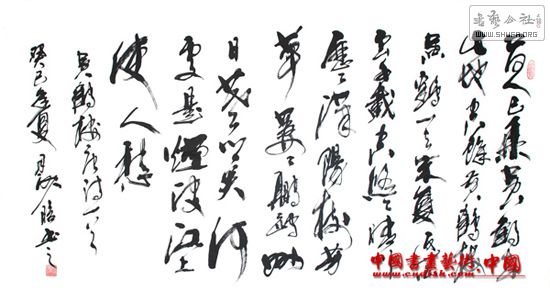 昔人已乘黄鶴去
此地空餘黄鶴樓
黄鶴一去不復返白
雲千載空悠悠晴川
歷歷漢陽樹芳
草萋萋鸚鵡洲
日暮鄉關何
處是煙波江上
使人愁
黄鶴樓唐詩一首
癸巳年夏月 書之
书艺公社
WWW.SHUFA.ORG
中國書畫藝術.中國
www.cnshsh.org